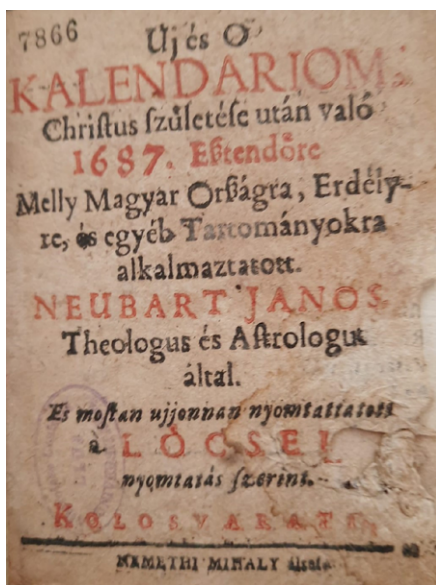 7866
Uj és O
KALENDARIOM,
Chriſtus ſzůletéſe után való
1687. Eßtendőre
Melly Magyar Orßágra, Erdély-
re, és egyéb Tartományokra
alkalmaztatott.
NEUBART JANOS
Theologus és Aſtrologus
által.
Es moſtan ujjonnan nyomtattatott
a LÖCSEI
nyomtatás ſzerint.
KOLOSVARATT,
NEMETHI MIHALY által.